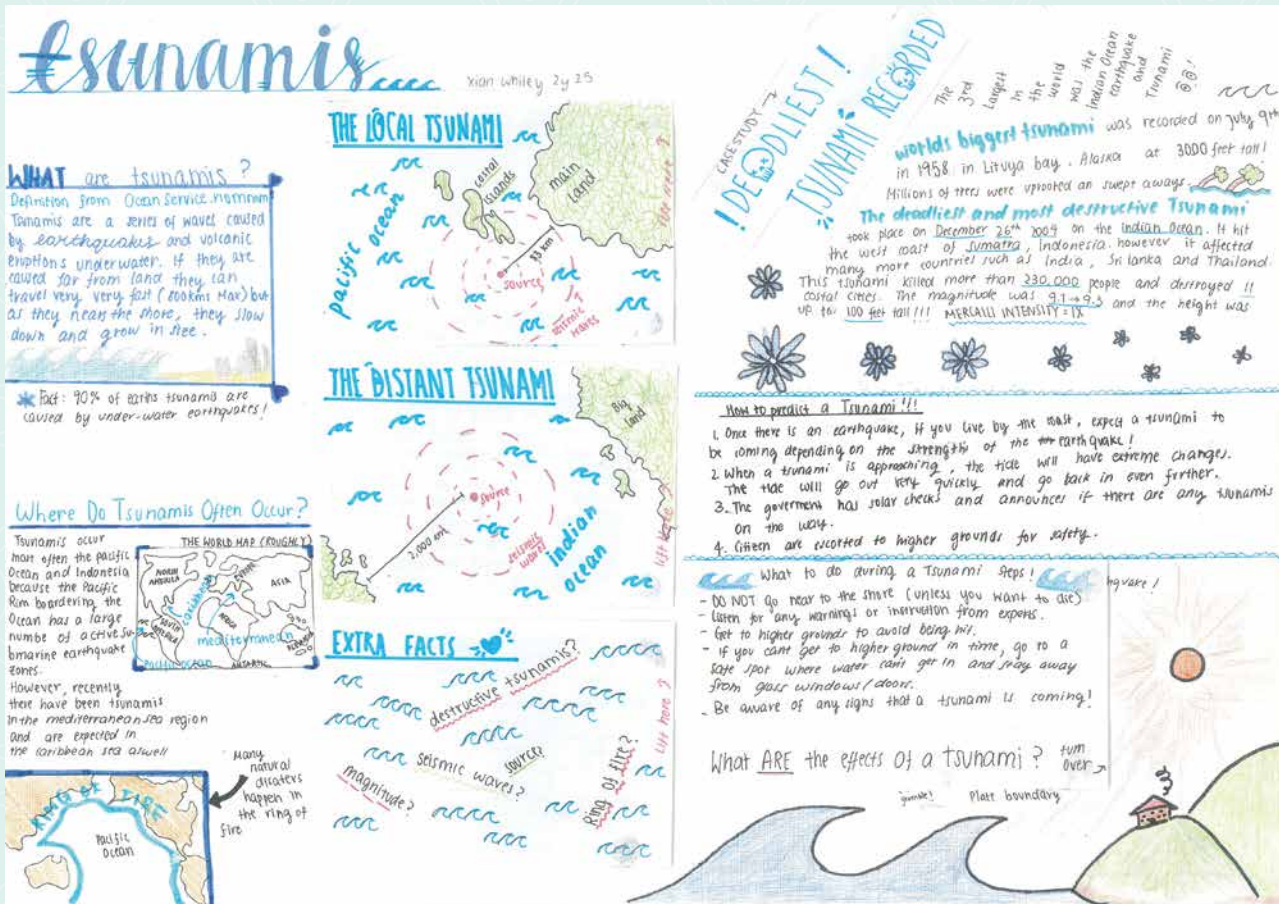 tsunamis
xian whiley 2y 25
WHAT are tsunamis ?
Definition from Ocean Service.
Tsnamis are a series of waves caused
by earthquakes and volcanic
eruptions underwater. If they are
caused far from land they can
travel very very fast (800kms Max) but
as they near the shore, they slow
down and grow in size.
Fact: 90% of earths tsunamis are
caused by under-water earthquakes!
Where Do Tsunamis Often Occur?
Tsunamis occur
most often the pacific
Ocean and Indonesia
because the Pacific
Rim boardering the
Ocean has a large
numbe of active su-
bmarine earthquake
zones.
However, recently
there have been tsunamis
in the mediterranean sea region
and are expected in
the caribbean sea aswell
THE WORLD MAP (ROUGHLY)
NORTH
AMERICA
EUROPE
ASIA
caribbean
SOUTH
AMERICA
AFRICA
mediterranean
PACIFIC OCEAN
ANTARTIC
RING OF FIRE
Pacific
Ocean
Many
natural
disaters
happen in
the ring of
fire
THE LOCAL TSUNAMI
pacific ocean
costal
islands
main
Land
source
seismic
waves
THE DISTANT TSUNAMI
Big
land
source
2,000 km
seismic
waves
indian
ocean
lift here
EXTRA FACTS
destructive tsunamis?
seismic waves?
source?
magnitude?
Ring of fire?
lift here
CASE STUDY
!DEADLIEST!
TSUNAMI RECORDED
The
3rd
Largest
In
the
world
was the
Indian Ocean
earthquake
and
Tsunami
!
worlds biggest tsunami was recorded on july 9th
in 1958 in Lituya bay. Alaska at 3000 feet tall!
Millions of trees were uprooted an swept aways.
The deadliest and most destructive Tsunami
took place on December 26th 2004 on the Indian Ocean. It hit
the west coast of Sumatra, Indonesia. however it affected
many more countries such as India, Sri lanka and Thailand.
This tsunami killed more than 230,000 people and destroyed !!
costal cities. The magnitude was 9.1→9.3 and the height was
up to 100 feet tall!!! MERCALLI INTENSITY = IX
How to predict a Tsunami!!!
1. Once there is an earthquake, if you live by the coast, expect a tsunami to
be coming depending on the strength of the earthquake!
2. When a tsunami is approaching, the tide will have extreme changes.
The tide will go out very quickly and go back in even further.
3. The goverment has solar checks and announces if there are any tsunamis
on the way.
4. Citizen are escorted to higher grounds for safety.
What to do during a Tsunami steps!
hquake!
- DO NOT go near to the shore (unless you want to die)
- Listen for any warnings or instruction from experts.
- Get to higher grounds to avoid being hit.
- If you cant get to higher ground in time, go to a
safe spot where water can't get in and stay away
from glass windows/doors.
- Be aware of any signs that a tsunami is coming!
What ARE the effects of a tsunami?
turn
over
Plate boundary